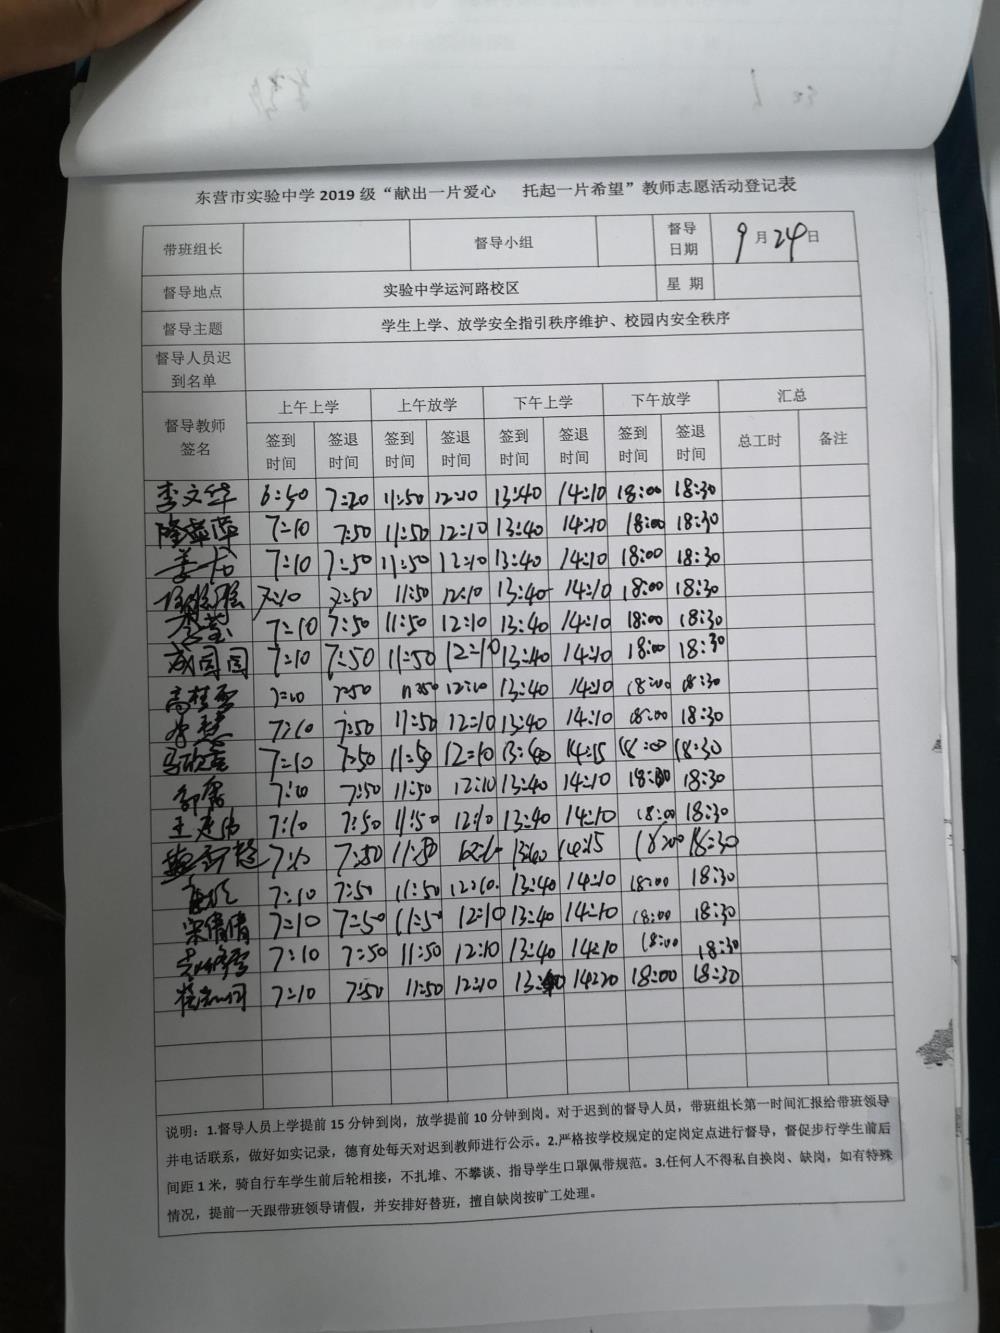 东营市实验中学 2019 级“献出一片爱心 托起一片希望”教师志愿活动登记表
带班组长 督导小组 督导日期 9月24日
督导地点 实验中学运河路校区 星 期
督导主题 学生上学、放学安全指引秩序维护、校园内安全秩序
督导人员迟到名单
督导教师签名 上午上学 上午放学 下午上学 下午放学 汇总
签到时间 签退时间 签到时间 签退时间 签到时间 签退时间 签到时间 签退时间 总工时 备注
李文华 6:50 7:20 11:50 12:10 13:40 14:10 18:00 18:30
7:10 7:50 11:50 12:10 13:40 14:10 18:00 18:30
7:10 7:50 11:50 12:10 13:40 14:10 18:00 18:30
7:10 7:50 11:50 12:10 13:40 14:10 18:00 18:30
7:10 7:50 11:50 12:10 13:40 14:10 18:00 18:30
成园园 7:10 7:50 11:50 12:10 13:40 14:10 18:00 18:30
7:50 11:50 12:10 13:40 14:10 18:00 18:30
7:10 7:50 11:50 12:10 13:40 14:10 18:00 18:30
7:10 7:50 11:50 12:10 13:40 14:15 18:00 18:30
7:50 11:50 12:10 13:40 14:10 18:00 18:30
王建伟 7:10 7:50 11:50 12:10 13:40 14:10 18:00 18:30
7:50 11:50 13:40 14:15 18:00 18:30
7:10 7:50 11:50 12:10. 13:40 14:10 18:00 18:30
宋倩倩 7:10 7:50 11:50 12:10 13:40 14:10 18:00 18:30
7:10 7:50 11:50 12:10 13:40 14:10 18:00 18:30
7:10 7:50 11:50 12:10 14:20 18:00 18:30
说明：1.督导人员上学提前 15 分钟到岗，放学提前 10 分钟到岗。对于迟到的督导人员，带班组长第一时间汇报给带班领导
并电话联系，做好如实记录，德育处每天对迟到教师进行公示。2.严格按学校规定的定岗定点进行督导，督促步行学生前后
间距 1 米，骑自行车学生前后轮相接，不扎堆、不攀谈、指导学生口罩佩带规范。3.任何人不得私自换岗、缺岗，如有特殊
情况，提前一天跟带班领导请假，并安排好替班，擅自缺岗按旷工处理。